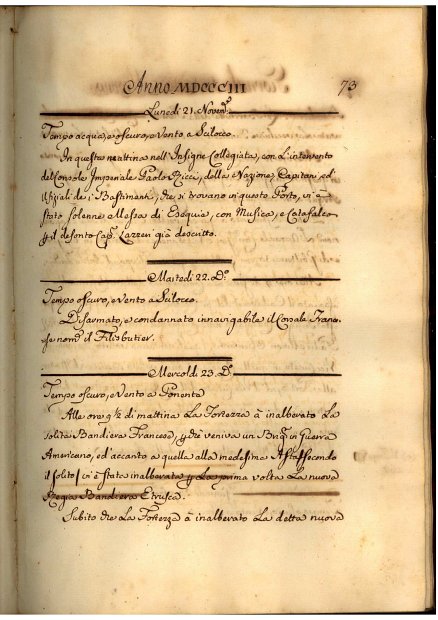 Anno MDCCCIII
73
Lunedi 21. Novem:
Tempo acqua, e oscuro, e Vento a Scilocco.
In questa mattina nell'Insigne Collegiata, con L'intervento
del Console Imperiale Paolo Ricci, della Nazione, Capitan, ed
Ufiziali de i Bastimenti, che si trovano in questo Porto, vi è
stato Solenne Messa di Esequia, con Musica, e Catafalco
p il defonto Cap. Larren già descritto.
Martedi 22. Do
Tempo oscuro, e Vento a Scilocco.
Disarmato, e condannato innavigabile il Corsale France-
se nom: il Filibustier.
Mercoldi 23. Do
Tempo oscuro, e Vento a Ponente
Alle ore 9 ½ di mattina La Fortezza à inalberato La
solita Bandiera Francese, p che veniva un Brig: in Guerra
Americano, ed accanto a quella alla medesima Asta / secondo
il solito / vi è stata inalberata p La prima volta La nuova
Regia Bandiera Etrusca.
Subito che La Fortezza à inalberato La detta nuova